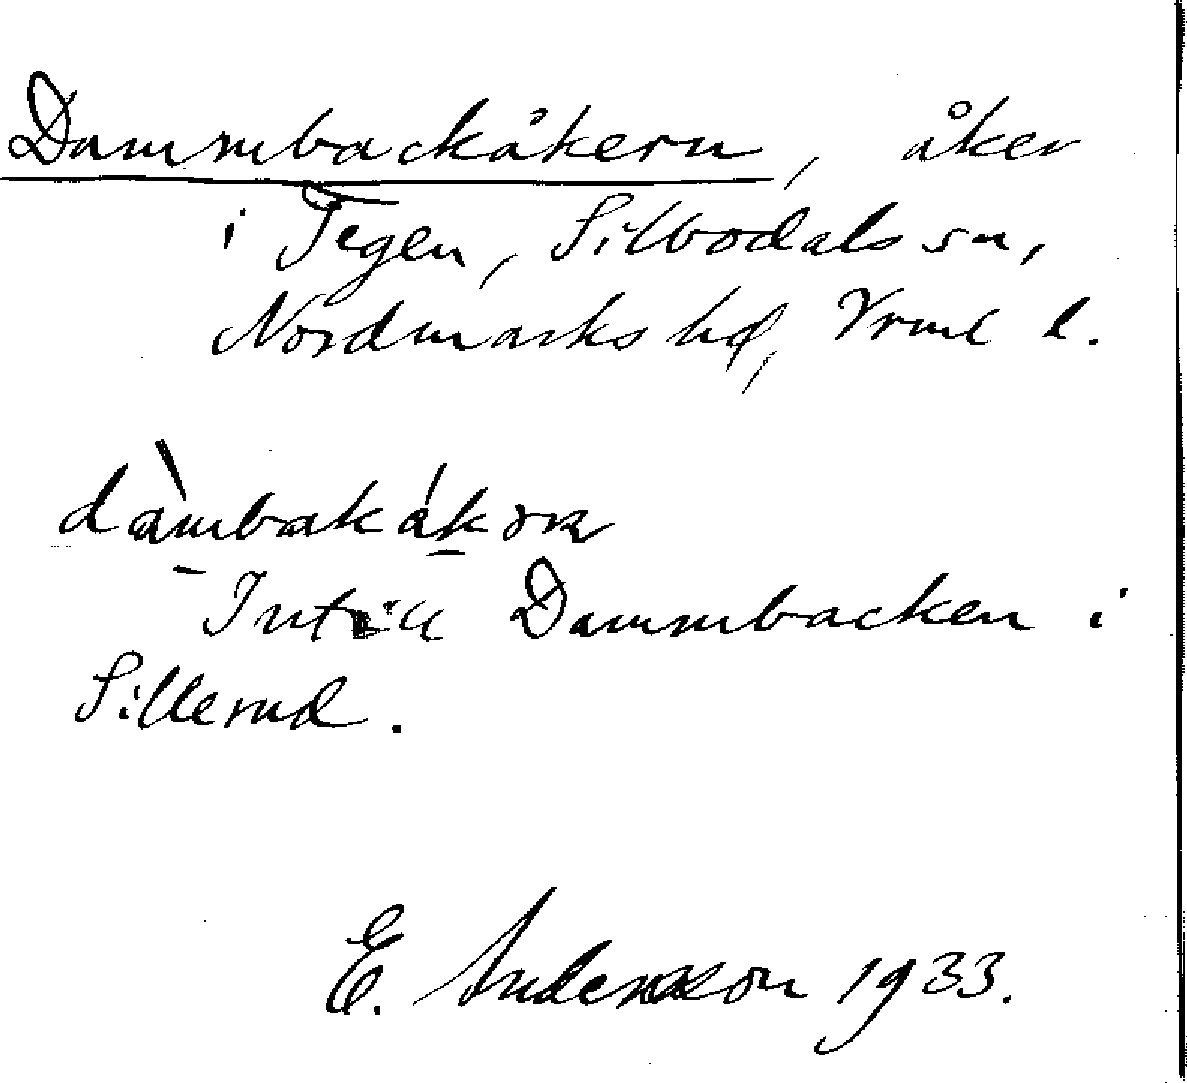 Dammbackåkern, åker
i Tegen, Silbodals sn,
Nordmarks hd, Vrml l.
dàmbakåkɔrn
Intill Dammbacken i
Sillerud.
E. Andersson 1933.